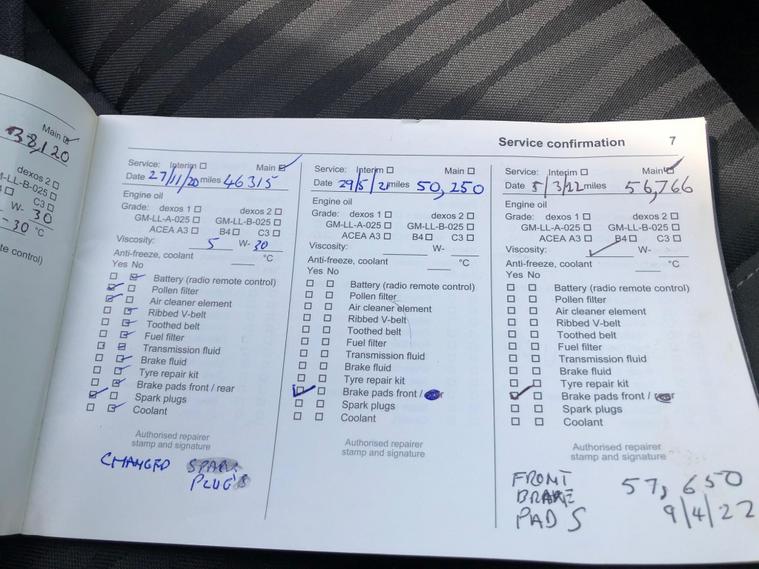 Main
38,120
dexos 2
GM-LL-B-025
C3
W- 30
-30 °C
te control)
Service confirmation 7
Service: Interim Main
Date 27/11/20 miles 46315
Engine oil
Grade: dexos 1 dexos 2
GM-LL-A-025 GM-LL-B-025
ACEA A3 B4 C3
Viscosity: 5 W- 30
Anti-freeze, coolant °C
Yes No
Battery (radio remote control)
Pollen filter
Air cleaner element
Ribbed V-belt
Toothed belt
Fuel filter
Transmission fluid
Brake fluid
Tyre repair kit
Brake pads front / rear
Spark plugs
Coolant
Authorised repairer
stamp and signature
CHANGED SPARK
PLUG'S
Service: Interim Main
Date 29/5/21 miles 50,250
Engine oil
Grade: dexos 1 dexos 2
GM-LL-A-025 GM-LL-B-025
ACEA A3 B4 C3
Viscosity: W-
Anti-freeze, coolant °C
Yes No
Battery (radio remote control)
Pollen filter
Air cleaner element
Ribbed V-belt
Toothed belt
Fuel filter
Transmission fluid
Brake fluid
Tyre repair kit
Brake pads front /
Spark plugs
Coolant
Authorised repairer
stamp and signature
Service: Interim Main
Date 5/3/22 miles 56,766
Engine oil
Grade: dexos 1 dexos 2
GM-LL-A-025 GM-LL-B-025
ACEA A3 B4 C3
Viscosity: W-
Anti-freeze, coolant °C
Yes No
Battery (radio remote control)
Pollen filter
Air cleaner element
Ribbed V-belt
Toothed belt
Fuel filter
Transmission fluid
Brake fluid
Tyre repair kit
Brake pads front /
Spark plugs
Coolant
Authorised repairer
stamp and signature
FRONT 57,650
BRAKE 9/4/22
PADS